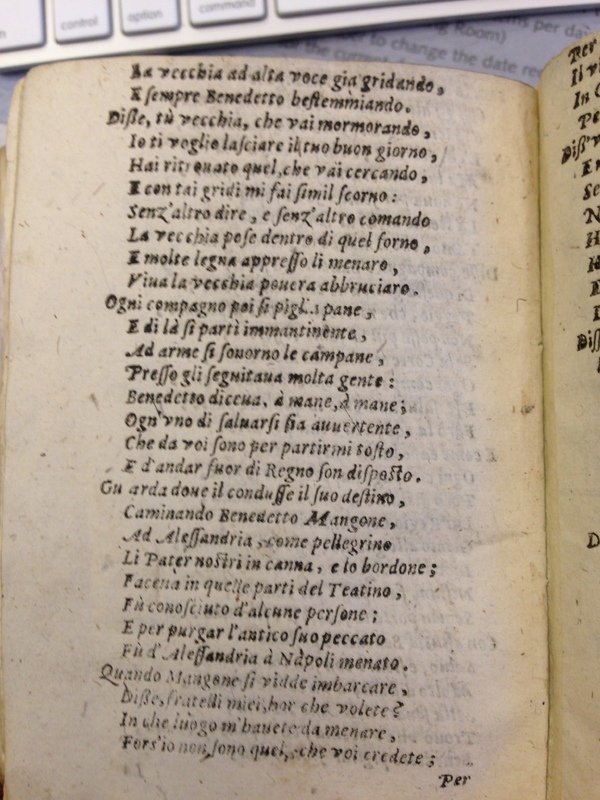 control
option
command
ns per da
Room)
er to change the date rec
the current
La vecchia ad alta voce già gridando,
E sempre Benedetto bestemmiando.
Disse, tù vecchia, che vai mormorando,
Io ti voglio lasciare il tuo buon giorno,
Hai ritrouato quel, che vai cercando,
E con tai gridi mi fai simil scorno:
Senz'altro dire, e senz'altro comando
La vecchia pose dentro di quel forno,
E molte legna appresso li menaro,
Viua la vecchia pouera abbruciaro.
Ogni compagno poi si piglia pane,
E di là si partì immantinente,
Ad arme si sonorno le campane,
Presso gli segnitaua molta gente:
Benedetto diceua, à mane, à mane;
Ogn'vno di saluarsi sia auuertente,
Che da voi sono per partirmi tosto,
E d'andar fuor di Regno son disposto.
Gu arda doue il condusse il suo destino,
Caminando Benedetto Mangone,
Ad Alessandria, come pellegrino
Li Pater nostri in canna, e lo bordone;
Facena in quelle parti del Teatino,
Fù conosciuto d'alcune persone;
E per purgar l'antico suo peccato
Fù d'Alessandria à Napoli menato.
Quando Mangone si vidde imbarcare,
Disse, fratelli miei, hor che volete?
In che luogo m'hauete da menare,
Fors'io non sono quel, che voi credete;
Per
Per
Il vi
In C
Pe
Diss'v
E
Se
N
H
E
Diss
D